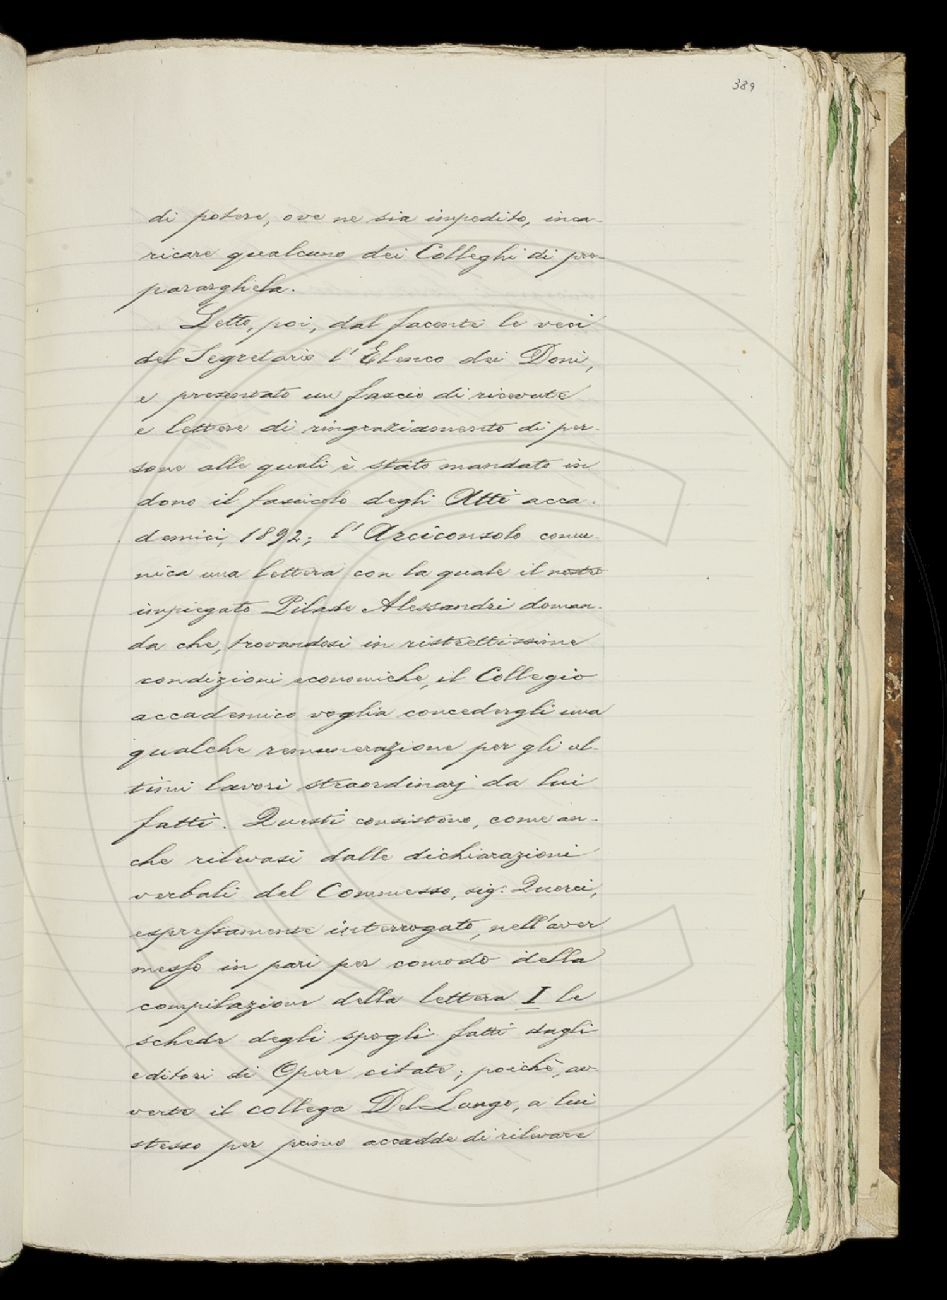 389
di potere, ove ne sia impedito, inca-
ricare qualcuno dei Colleghi di pre-
pararghela.
Letto, poi, dal facente le veci
del Segretario l'Elenco dei Doni,
e presentato un fascio di ricevute
e lettere di ringraziamento di per-
sone alle quali è stato mandato in
dono il fascicolo degli Atti acca-
demici, 1892; l'Arciconsolo comu-
nica una lettera con la quale il nostro
impiegato Pilade Alessandri doman-
da che, trovandosi in ristrettissime
condizioni economiche, il Collegio
accademico voglia concedergli una
qualche remunerazione per gli ul-
timi lavori straordinarj da lui
fatti. Questi consistono, come an-
che rilevasi dalle dichiarazioni
verbali del Commesso, sig. Querci,
espressamente interrogato, nell'aver
messo in pari per comodo della
compilazione della lettera I le
schede degli spogli fatti dagli
editori di Opere citate; poichè, av-
verte il collega Del Lungo, a lui
stesso per primo accadde di rilevare